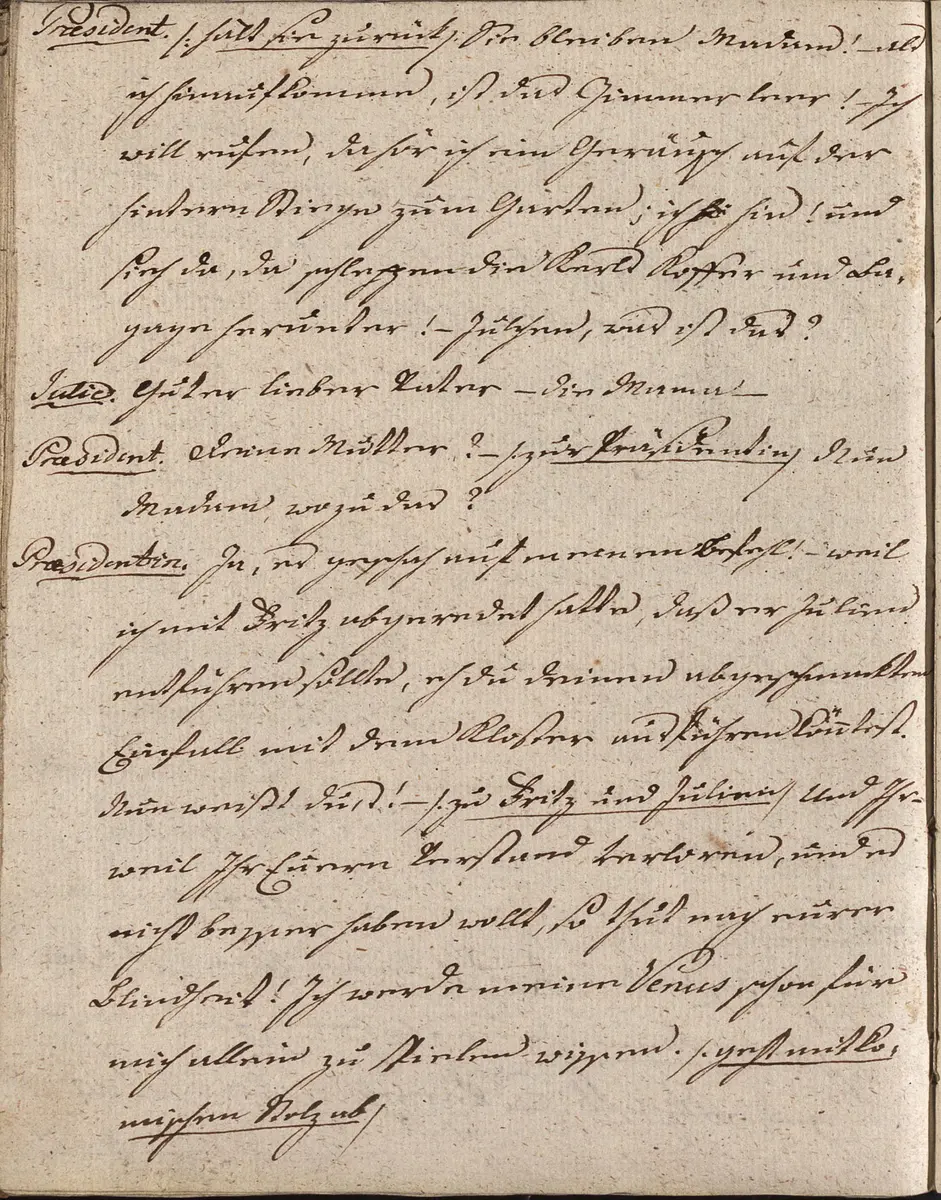 Præsident. /: hält sie zurück :/ Sie bleiben Madam! – als
ich hinaufkomme, ist das Zimmer leer! – Ich
will rufen, da hör ich ein Geräusch auf der
hintern Stiege zum Garten; ich hin! und
sieh da, da schleppen die Kerls Koffer und Ba-
gage herunter! – Julchen, was ist das?
Julie. Guter lieber Vater – die Mama! –
Præsident. Deine Mutter? – /: zur Präsidentin/ Nun
Madam, wozu das?
Præsidentin. Ja, es geschah auf meinen Befehl! – weil
ich mit Fritz abgeredet hatte, daß er Julien
entführen sollte, eh du deinen abgeschmackten
Einfall mit dem Kloster ausführen könntest.
Nun weißt du's! – /: zu Fritz und Julien/ Und Ihr –
weil Ihr Euern Verstand verloren, und es
nicht besser haben wollt, so thut nach eurer
Blindheit! Ich werde meine Venus schon für
mich allein zu spielen wissen. /: geht mit ko-
mischen Stolz ab/